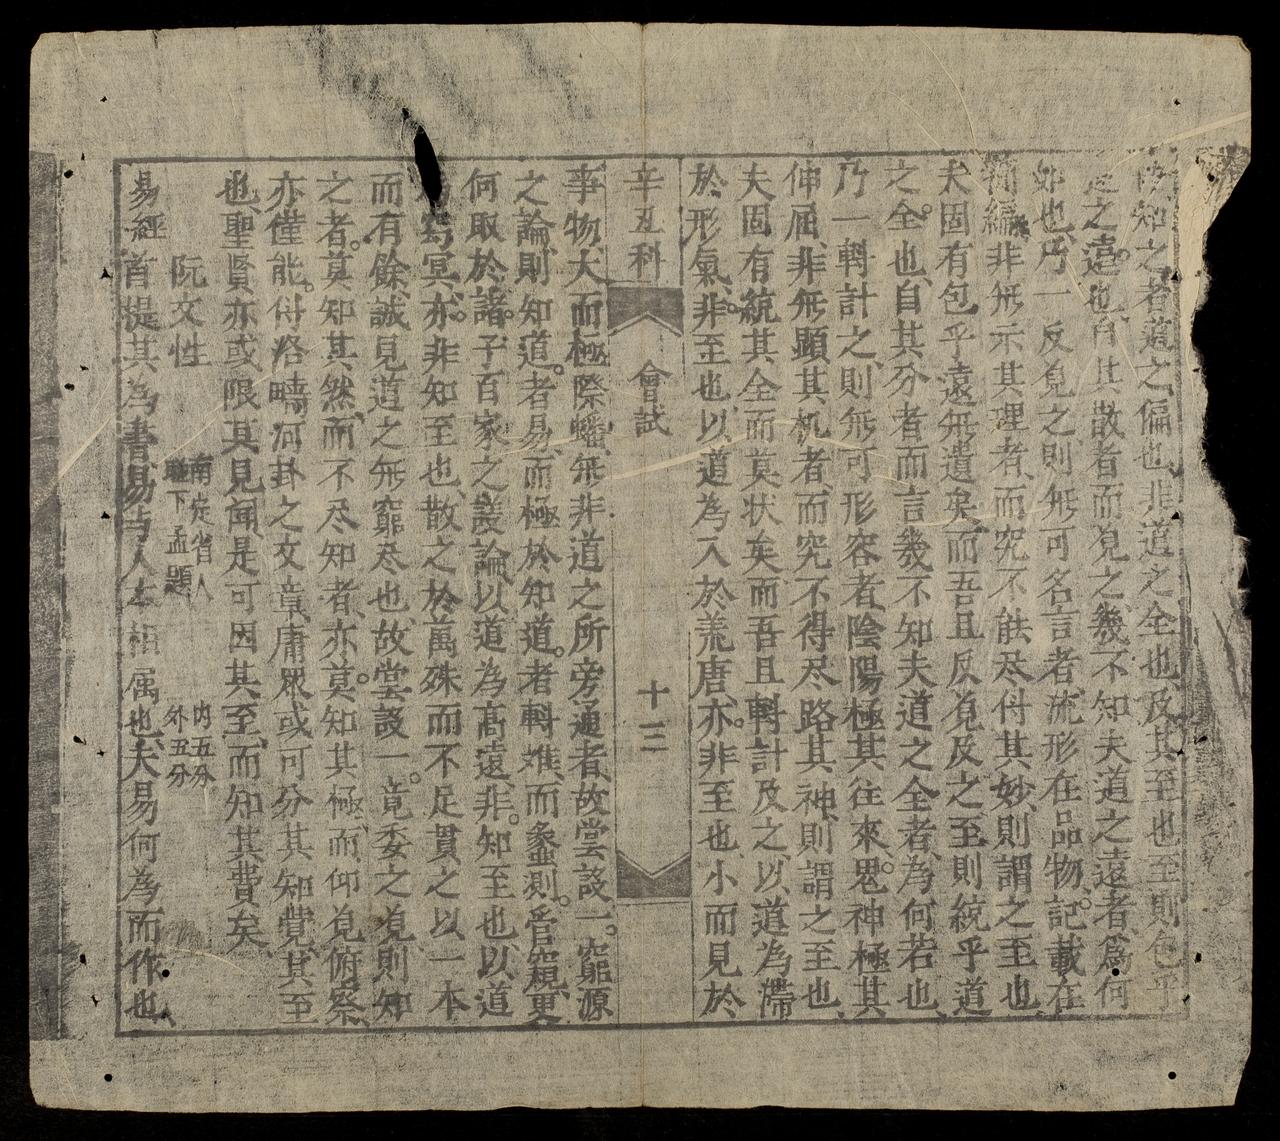 知之者叢之偏也非道之全也及其至也至則包乎
之遠也自其散者而見之幾不知夫道之遠者為何
如也乃一反覔之則無可名言者流形在品物記載在
簡編非無示其理者而究不能尽付其妙則謂之至也
夫固有包乎遠無遺矣而吾且反覔及之至則統乎道
之全也自其分者而言幾不知夫道之全者為何若也
乃一轉計之則無可形容者陰陽極其往來鬼神極其
伸屈非無顯其机者而究不得尽路其神則謂之至也
夫固有統其全而莫状矣而吾且轉計及之以道為滯
於形氣非至也以道為入於荒唐亦非至也小而見於
辛丑科 會試 十三
事物大而極際蟠無非道之所旁通者故嘗談一窮源
之論則知道者易而極於知道者轉难而蠡測管窺更
何取於諸子百家之議論以道為高遠非知至也以道
窈冥亦非知至也散之於萬殊而不足貫之以一本
而有餘誠見道之無窮尽也故嘗設一竟委之覔則知
之者莫知其然而不尽知者亦莫知其極而仰覔俯察
亦僅能付洛疇河卦之文章庸眾或可分其知覺其至
也聖賢亦或限其見聞是可因其至而知其費矣
阮文性 南定省人 内五分 外五分
易經首提其為書易与人相属也夫易何為而作也